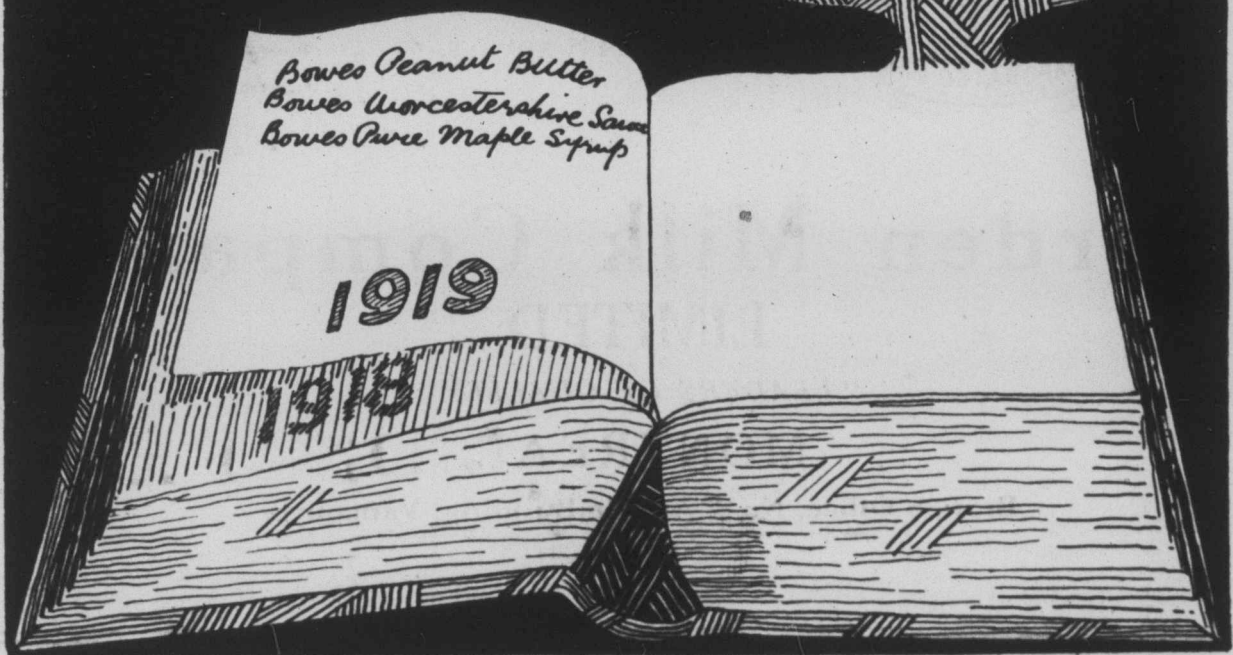 Bowes Peanut Butter
Bowes Worcestershire Sauce
Bowes Pure Maple Syrup
1919
1918